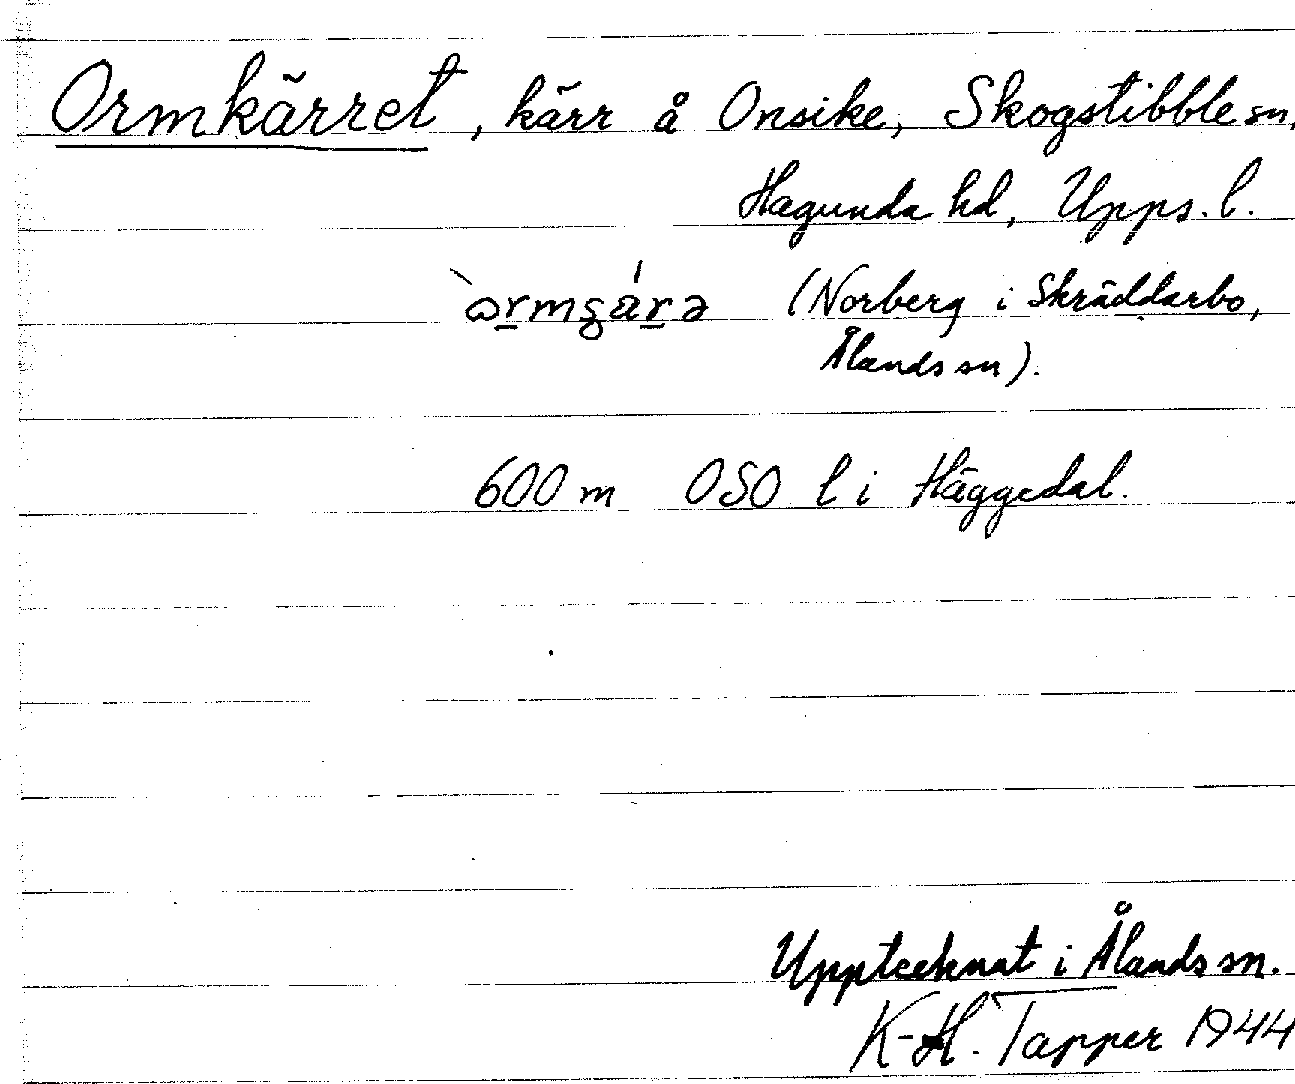 Ormkärret, kärr å Onsike, Skogstibble sn,
Hagunda hd, Upps. l.
(Norberg i Skräddarbo,
Ålands sn).
600 m OSO l i Häggedal.
Upptecknat i Ålands sn.
K-H. Tapper 1944